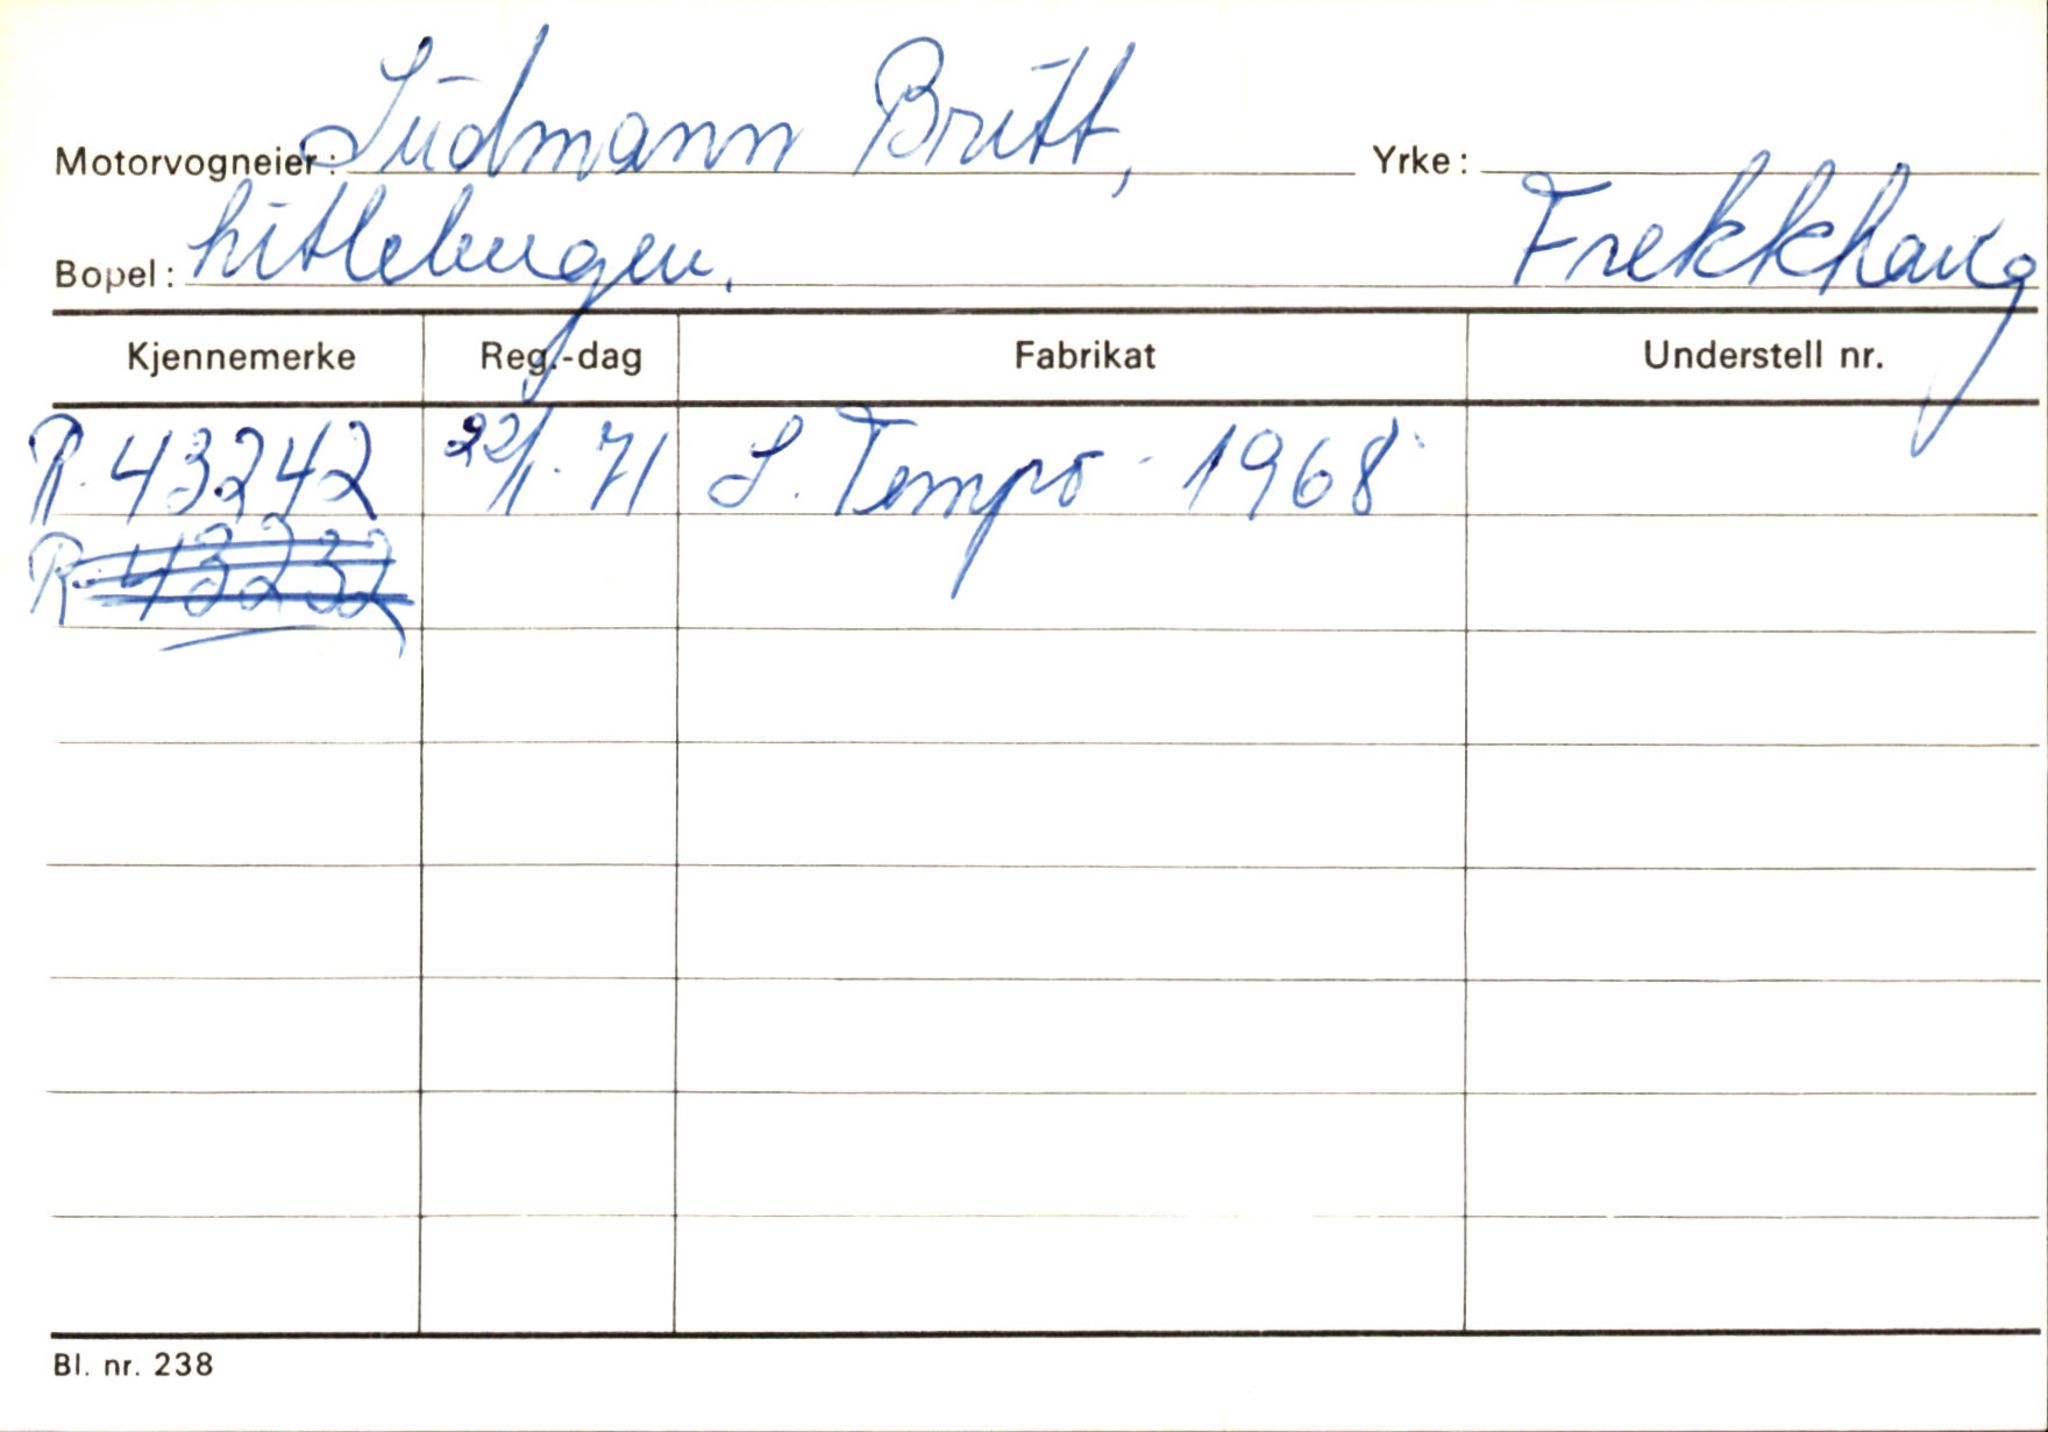 Motorvogneier: Südmann Britt, Yrke:
Bopel: Litlebergen. Frekkhaug
Kjennemerke Reg.-dag Fabrikat Understell nr.
R-43242 22/1-71 S. Tempo - 1968
R-43232
Bl. nr. 238